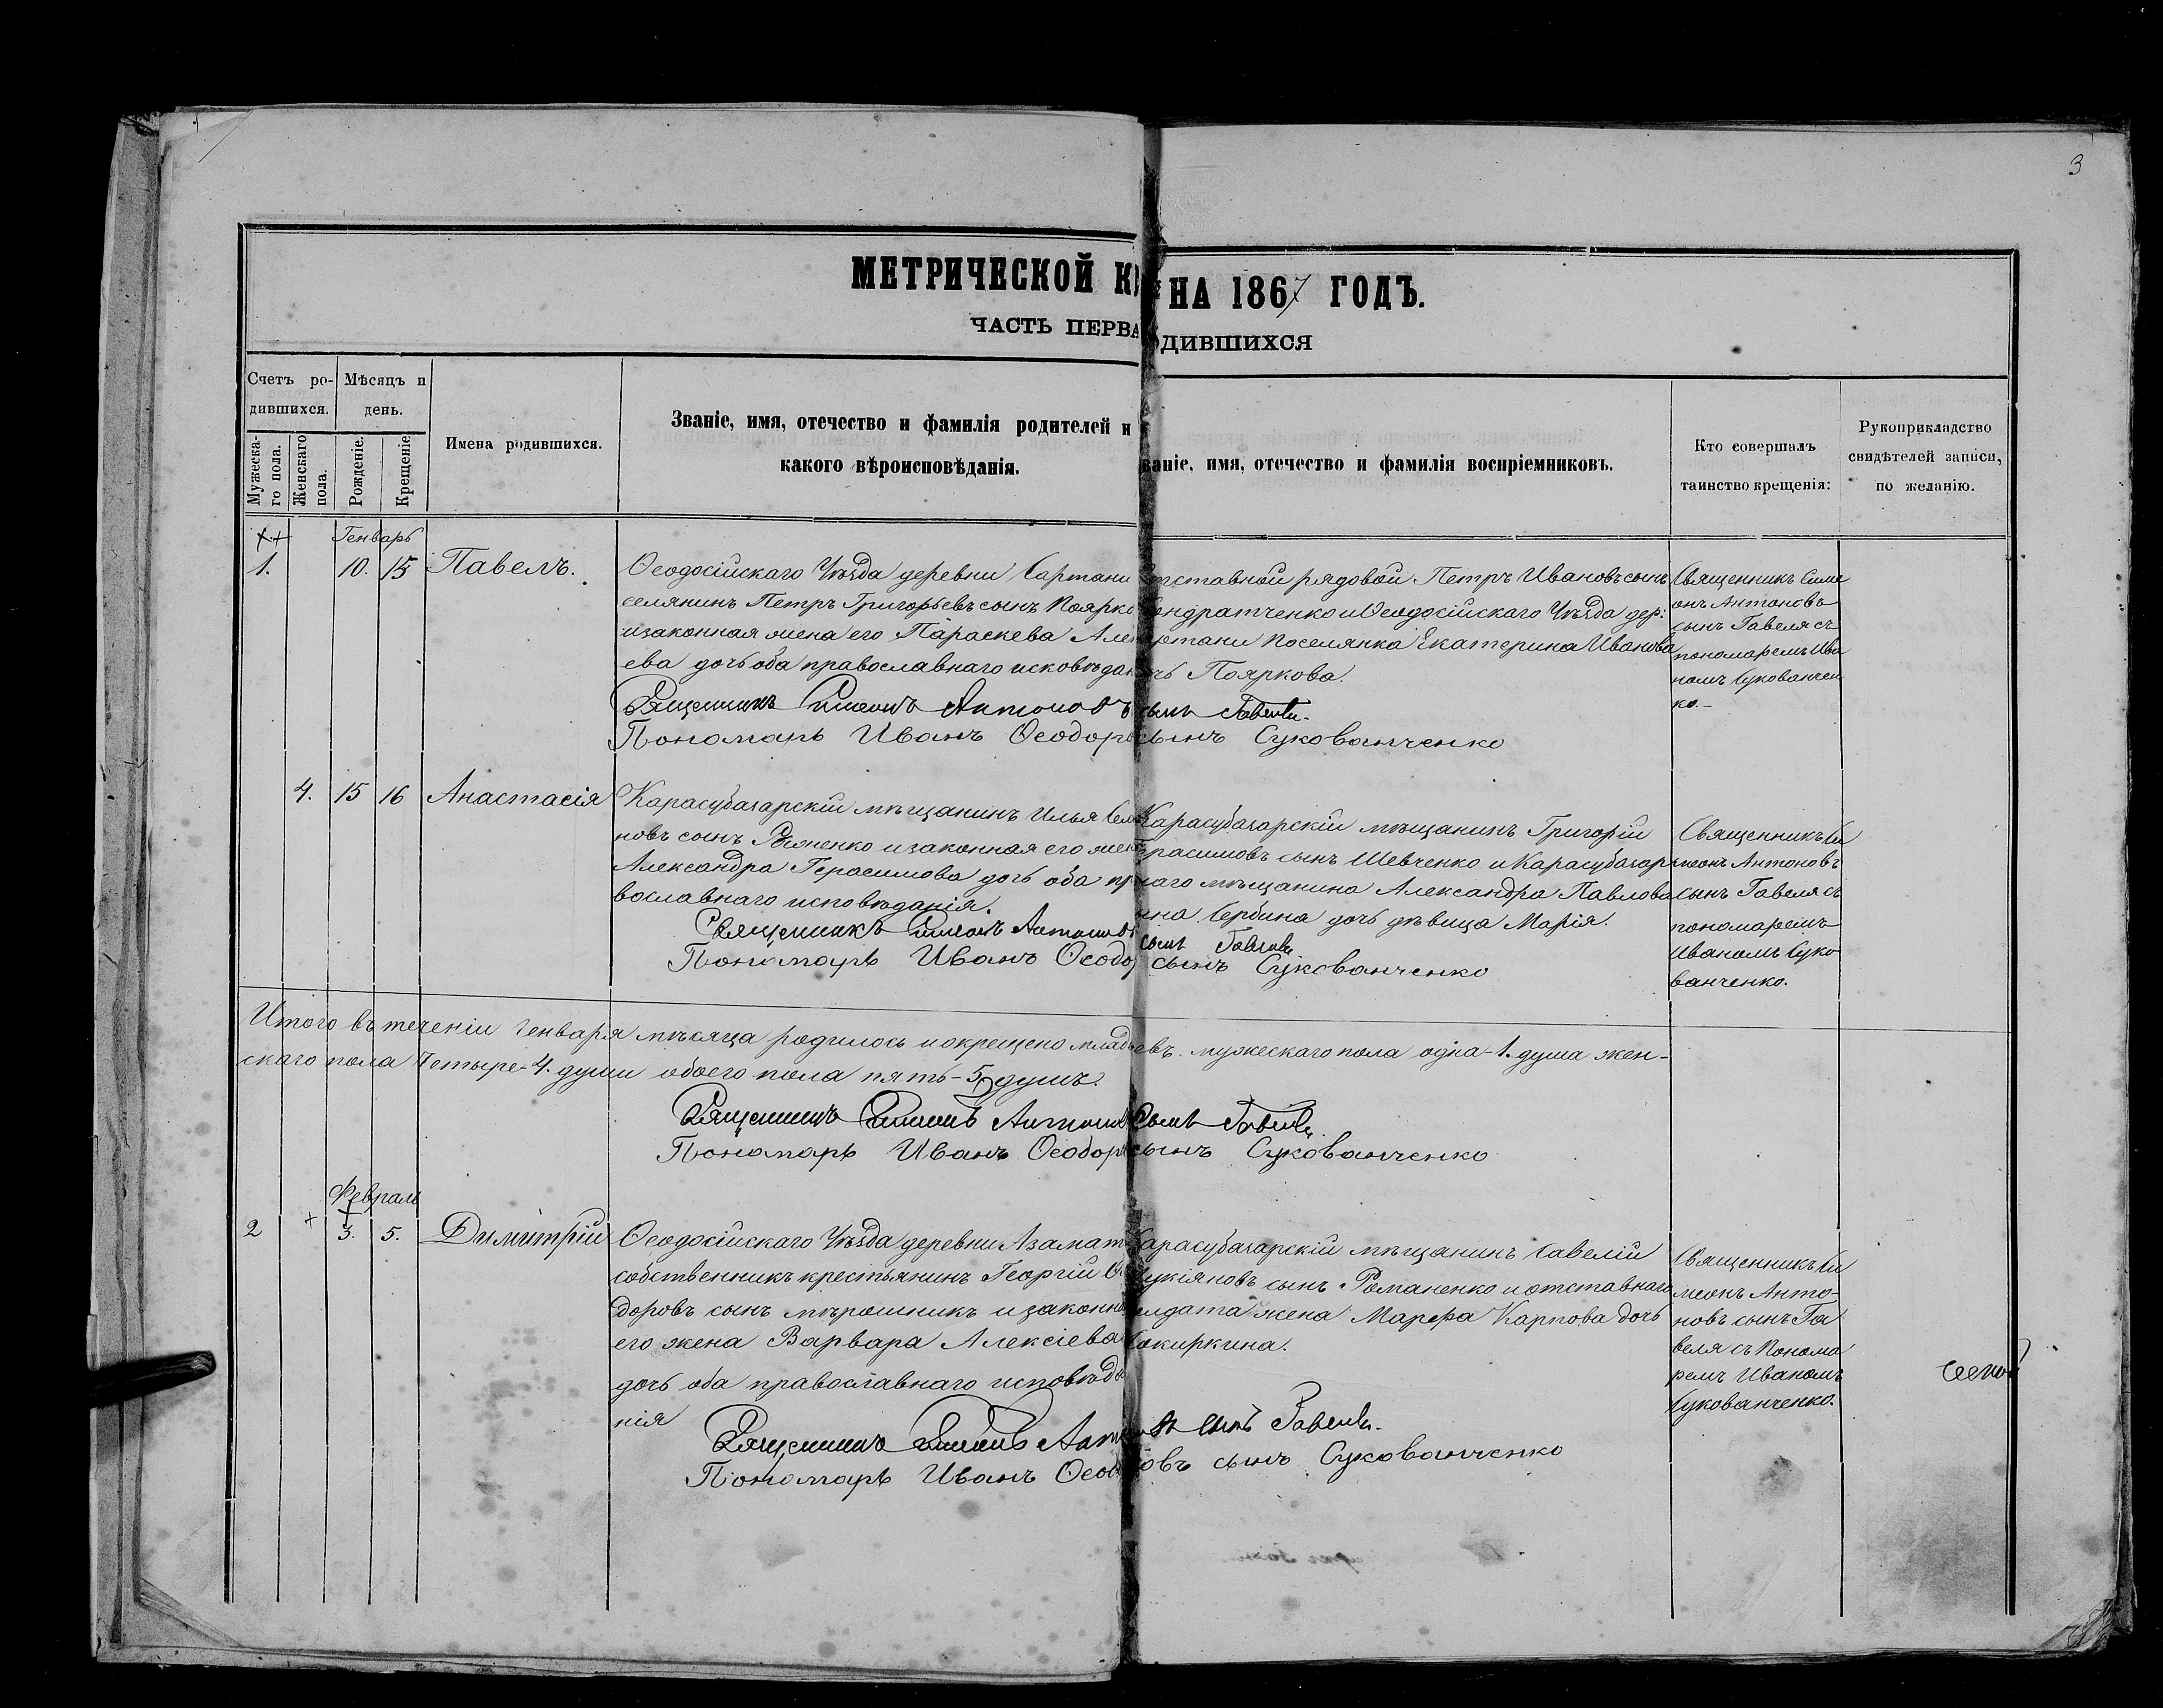 3
МЕТРИЧЕСКОЙ К
НА 1867 ГОДЪ.
ЧАСТЬ ПЕРВА
ДИВШИХСЯ
Счетъ ро-
дившихся.
Мужеска-
го пола.
Женскаго
пола.
Мѣсяцъ и
день.
Рожденіе.
Крещеніе.
Имена родившихся.
Званіе, имя, отечество и фамилія родителей и
какого вѣроисповѣданія.
ваніе, имя, отечество и фамилія воспріемниковъ.
Кто совершалъ
таинство крещенія:
Рукоприкладство
свидѣтелей записи,
по желанію.
Генварь
1. 10. 15 Павелъ.
Ѳеодосійскаго Уѣзда деревни Сартани
селянинъ Петръ Григорьевъ сынъ Поярко
и законная жена его Параскева Але
ева дочь оба православнаго исповѣдан
отставной рядовой Петръ Ивановъ сынъ
Кондратченко и Ѳеодосійскаго Уѣзда дер:
ртани поселянка Екатерина Иванова
чь Пояркова.
Священникъ Симе
онъ Антоновъ
сынъ Гавеля съ
пономаремъ Ива
номъ Сукованчен
ко.-
Священникъ Симеонъ Антоновъ сынъ Гавеля.
Пономарь Иванъ Ѳеодоръ сынъ Сукованченко
4. 15 16 Анастасія
Карасубазарскій мѣщанинъ Илья Сем
новъ сынъ
и законная его жен
Александра Герасимова дочь оба пр
вославнаго исповѣданія.
Карасубазарскій мѣщанинъ Григорій
ерасимовъ сынъ Шевченко и Карасубазар
наго мѣщанина Александра Павлова
ина Сербина дочь дѣвица Марія.
Священникъ Си
меонъ Антоновъ
сынъ Гавеля съ
пономаремъ
Иваномъ Суко
ванченко.
Священникъ Симеонъ Антоновъ сынъ Гавеля
Пономарь Иванъ Ѳеодо сынъ Сукованченко
Итого въ теченіи Генваря мѣсяца родилось и окрещено младе евъ. мужескаго пола одна-1. душа жен-
скаго пола Четыре-4. души обоего пола пять-5 душъ.
Священникъ Симеонъ Антонов сынъ Гавеля
Пономарь Иванъ Ѳеодоръ сынъ Сукованченко
Февраль
2 3. 5. Димитрій
Ѳеодосійскаго Уѣзда деревни Азамат
собственникъ крестьянинъ Георгій Ѳе
доровъ сынъ мѣрошникъ и законна
его жена Варвара Алексіева
дочь оба православнаго исповѣда
нія
Карасубазарскій мѣщанинъ Савелій
Лукіяновъ сынъ Романенко и отставнаго
олдата жена Марѳа Карпова дочь
Сокиркина.
Священникъ Си
меонъ Анто-
новъ сынъ Га
веля съ Понома
ремъ Иваномъ
Сукованченко.
Священникъ Симеонъ Анто въ сынъ Гавеля.
Пономарь Иванъ Ѳеод овъ сынъ Сукованченко